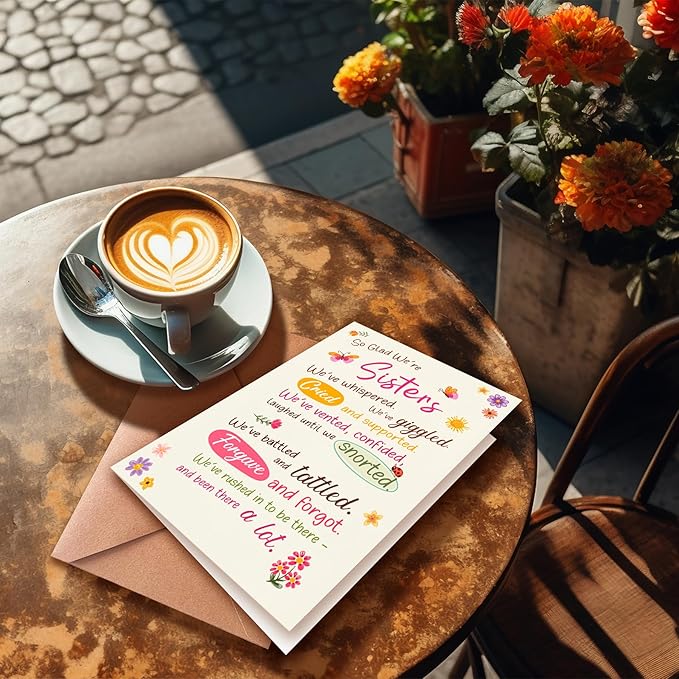 So Glad We're
Sisters
We've whispered.
We've giggled.
Cried and supported.
We've vented, confided,
laughed until we snorted.
We've battled
and tattled.
Forgave and forgot.
We've rushed in to be there –
and been there a lot.